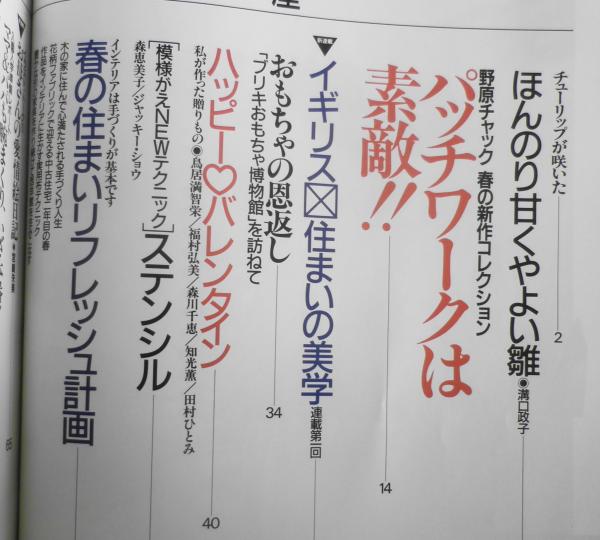 チューリップが咲いた
2
ほんのり甘くやよい雛
●溝口政子
野原チャック 春の新作コレクション
パッチワークは
素敵!!
14
新連載
イギリス 住まいの美学
連載第一回
おもちゃの恩返し
「ブリキおもちゃ博物館」を訪ねて
34
ハッピー♡バレンタイン
40
私が作った贈りもの●鳥居満智栄/福村弘美/森川千恵/知光薫/田村ひとみ
[模様がえNEWテクニック]ステンシル
森恵美子/ジャッキー・ショウ
インテリアは手づくりが基本です
春の住まいリフレッシュ計画
木の家に住んで心満たされる手づくり人生
花柄ファブリックで迎える中古住宅二年目の春